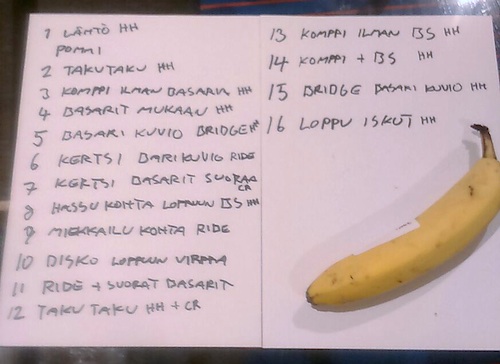 1 LÄHTÖ HH
POMMI
2 TAKUTAKU HH
3 KOMPPI ILMAN BASARIA HH
4 BASARIT MUKAAN HH
5 BASARI KUVIO BRIDGE HH
6 KERTSI BARIKUVIO RIDE
7 KERTSI BASARIT SUORAA
CR
8 HASSU KOHTA LOPPUUN BS HH
9 MIEKKAILU KOHTA RIDE
10 DISKO LOPPUUN VIRPPA
11 RIDE + SUORAT BASARIT
12 TAKU TAKU HH + CR
13 KOMPPI ILMAN BS HH
14 KOMPPI + BS HH
15 BRIDGE BASARI KUVIO HH
16 LOPPU ISKUT HH